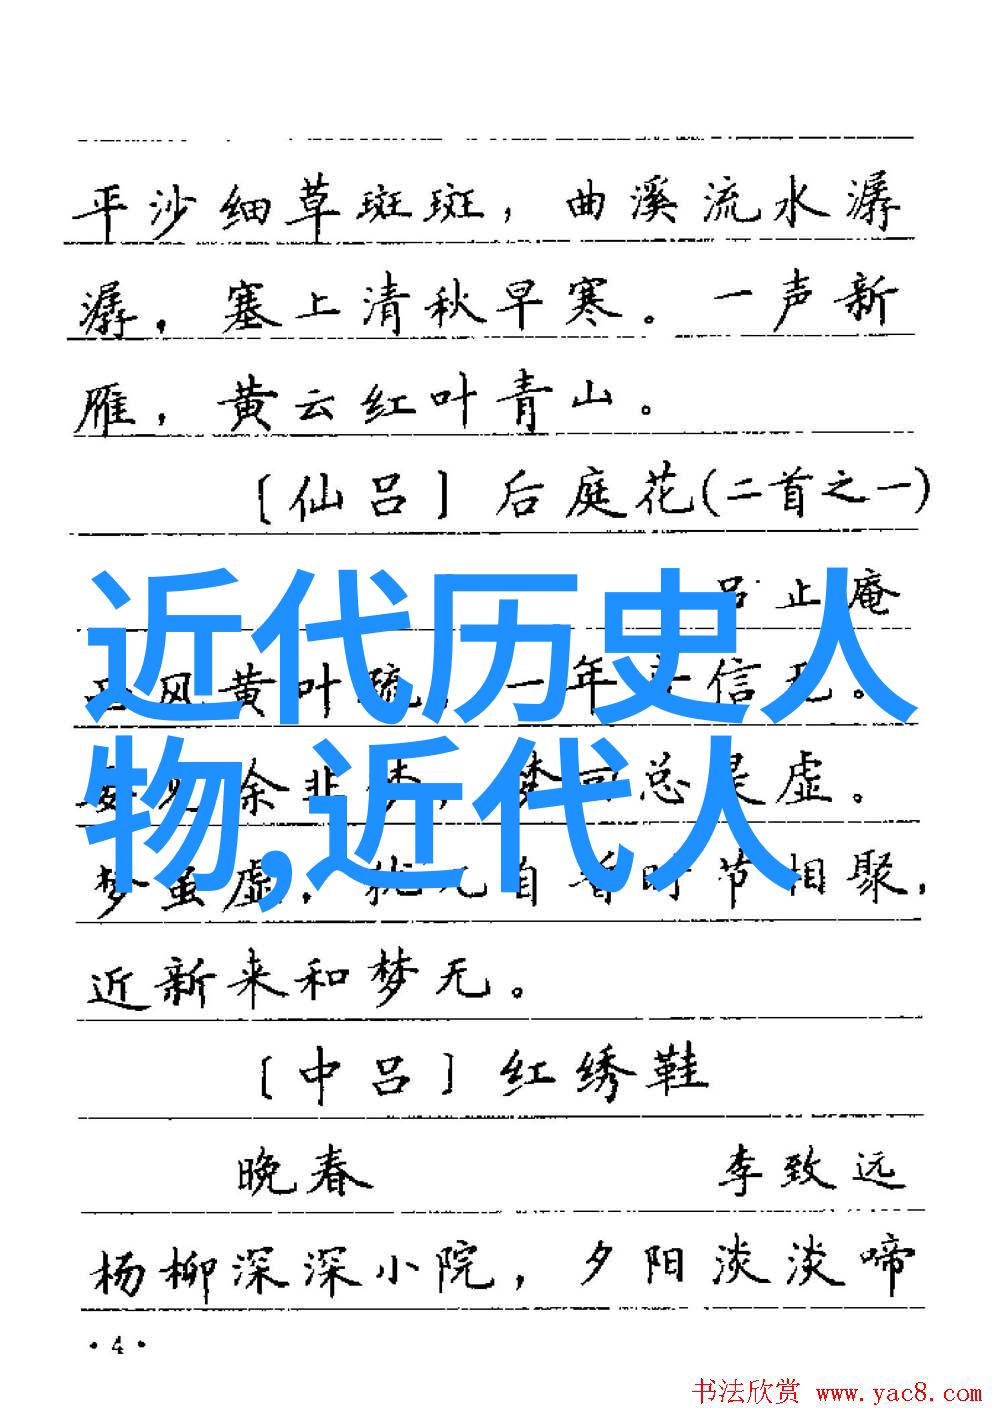 平沙细草斑斑，曲溪流水潺
潺，塞上清秋早寒。一声新
雁，黄云红叶青山。
〔仙吕〕后庭花(二首之一)
吕止庵
风黄叶疏，一年音信无。
除非梦，梦回总是虚。
梦虽虚，犹兀自暂时节相聚，
近新来和梦无。
〔中吕〕红绣鞋
晚春 李致远
杨柳深深小院，夕阳淡淡啼
·4·
近代历史人
物,近代人
书法欣赏 www.yac8.com